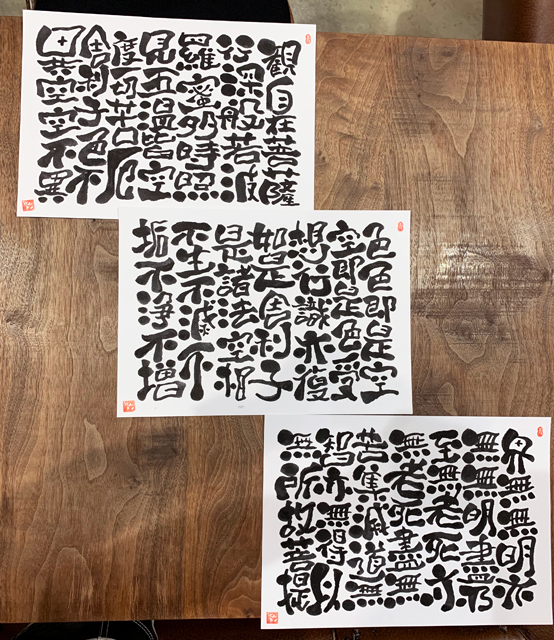 観自在菩薩
行深般若波
羅蜜多時照
見五蘊皆空
度一切苦厄
舎利子色不
異空空不異
色色即是空
空即是色受
想行識亦復
如是舎利子
是諸法空相
不生不滅不
垢不浄不増
界無無明亦
無無明盡乃
至無老死亦
無老死盡無
苦集滅道無
智亦無得以
無所故菩提